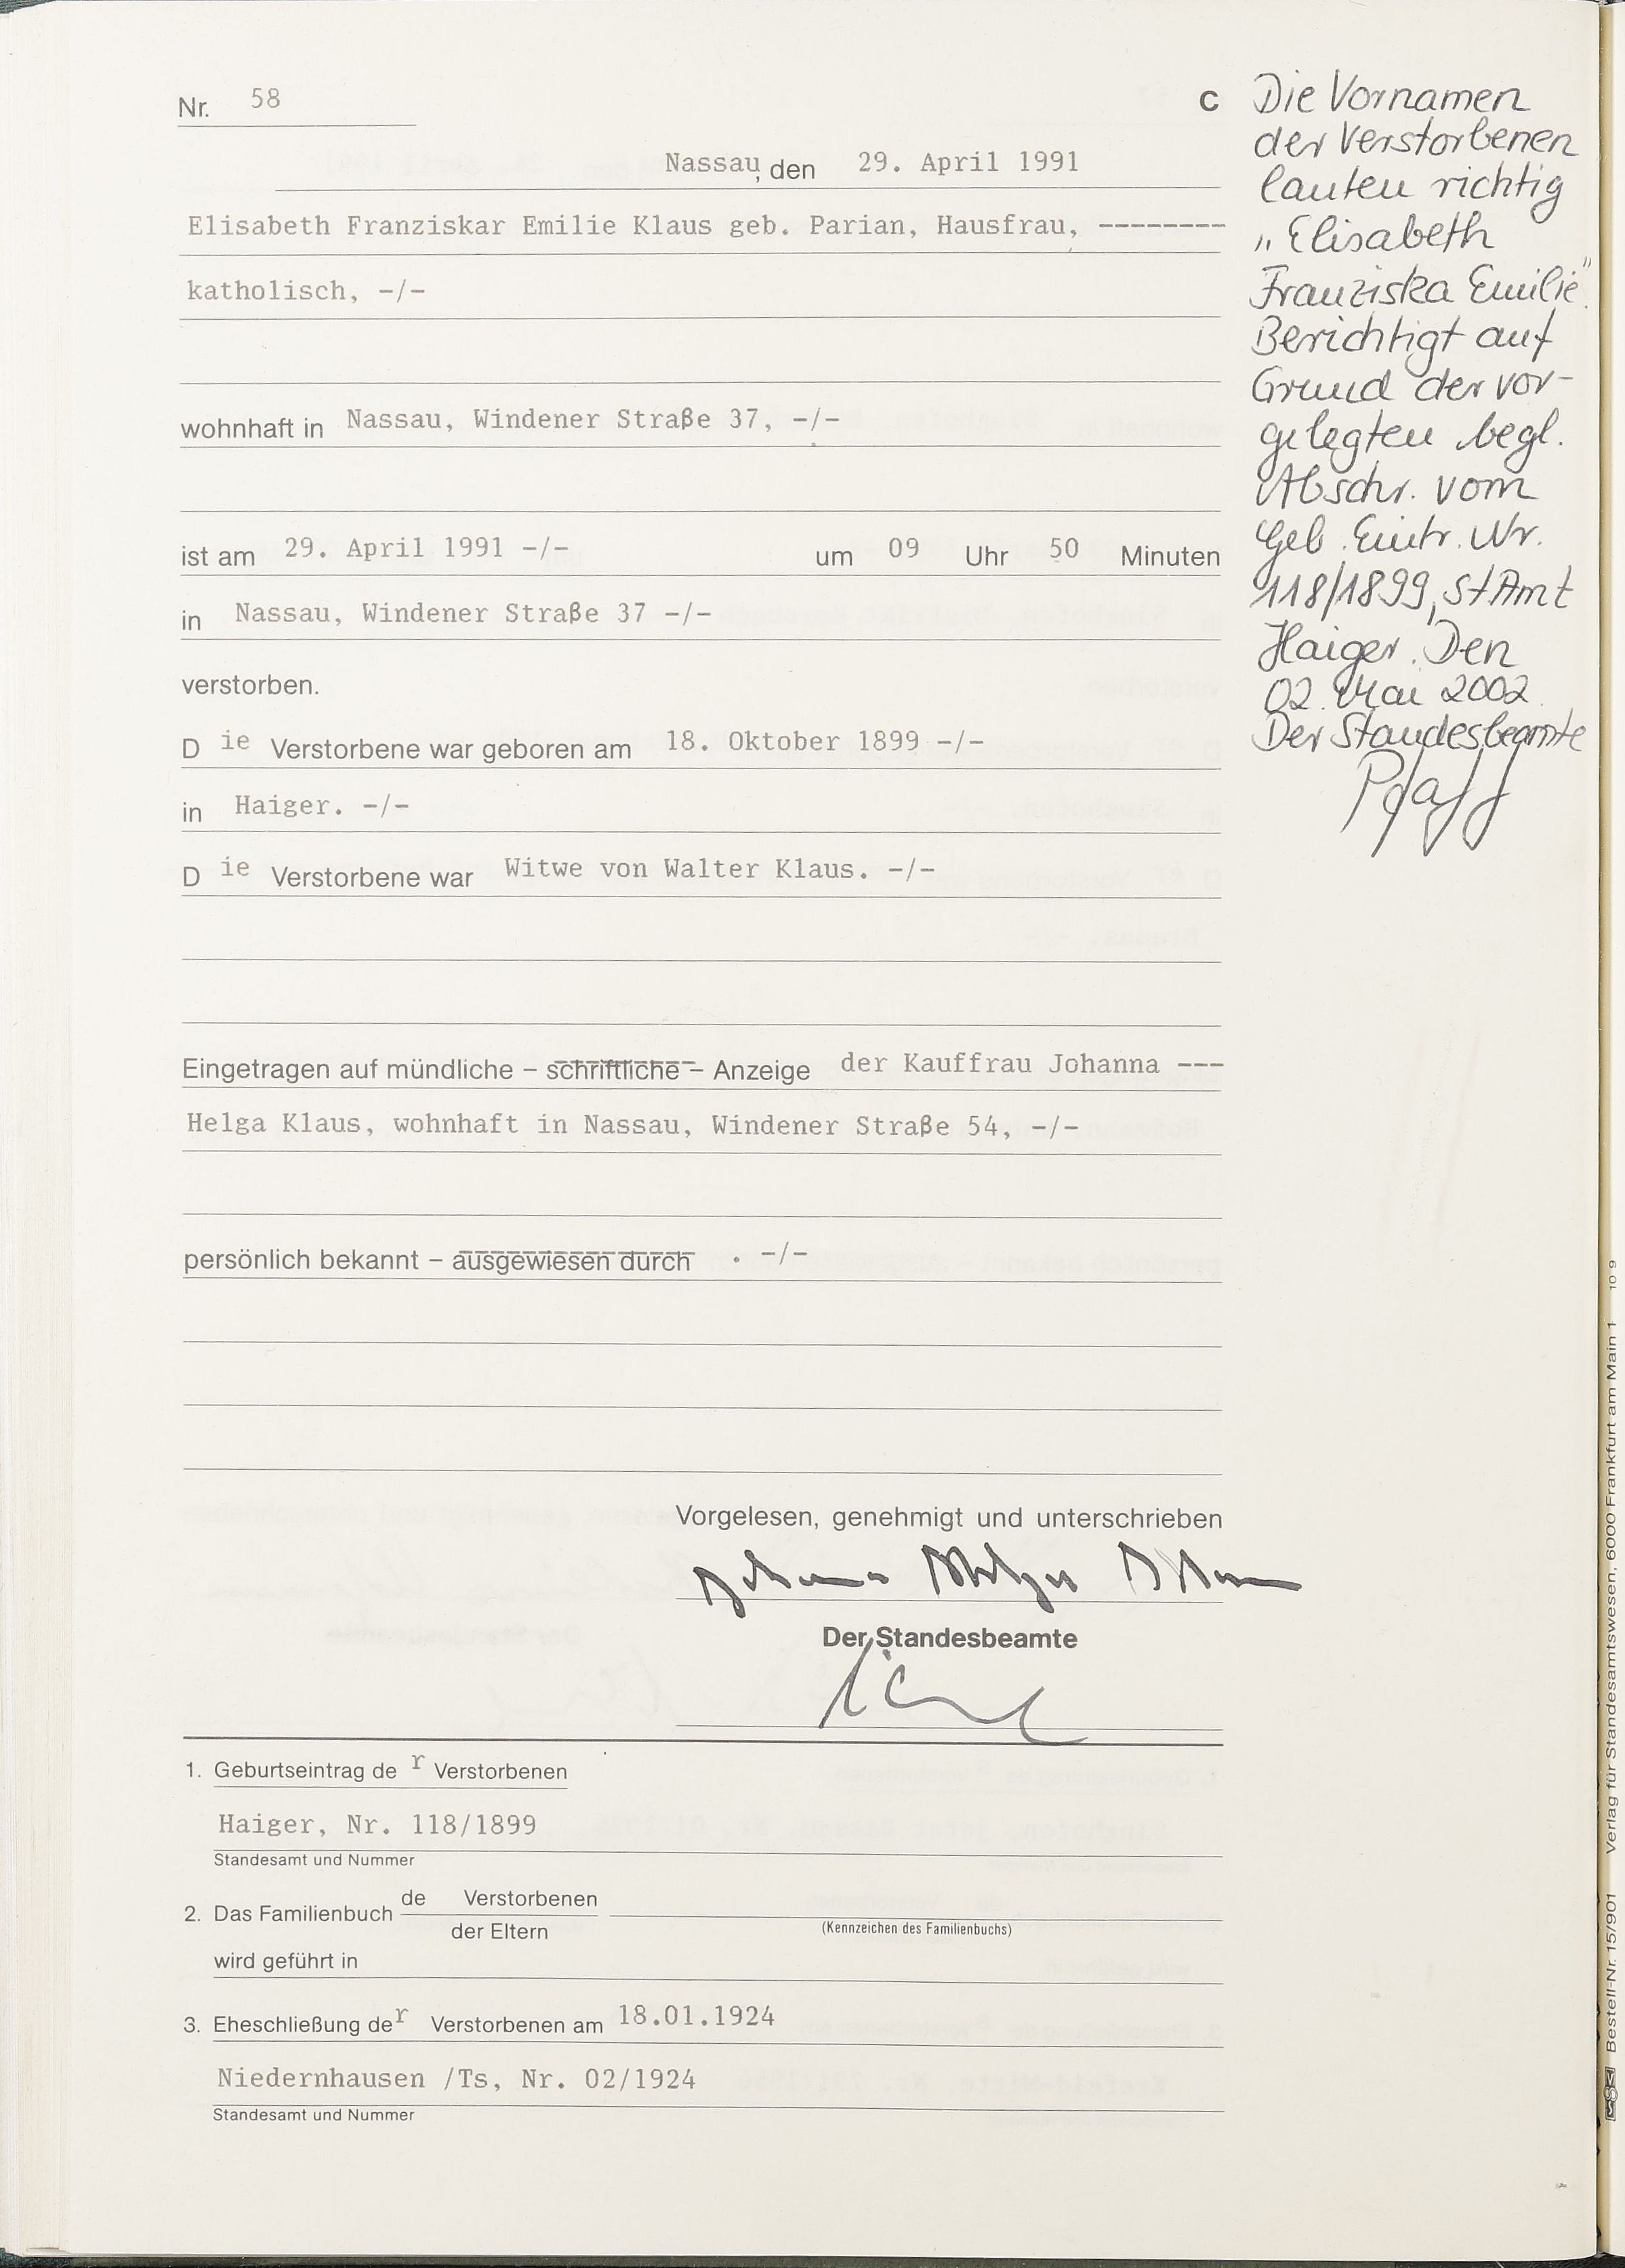 Nr. 58
C
Nassau, den 29. April 1991
Elisabeth Franziskar Emilie Klaus geb. Parian, Hausfrau, --------
katholisch, -/-
wohnhaft in Nassau, Windener Straße 37, -/-
ist am 29. April 1991 -/- um 09 Uhr 50 Minuten
in Nassau, Windener Straße 37 -/-
verstorben.
D ie Verstorbene war geboren am 18. Oktober 1899 -/-
in Haiger. -/-
D ie Verstorbene war Witwe von Walter Klaus. -/-
Eingetragen auf mündliche – schriftliche – Anzeige der Kauffrau Johanna ---
Helga Klaus, wohnhaft in Nassau, Windener Straße 54, -/-
persönlich bekannt – ausgewiesen durch . -/-
Vorgelesen, genehmigt und unterschrieben
Der Standesbeamte
1. Geburtseintrag de r Verstorbenen
Haiger, Nr. 118/1899
Standesamt und Nummer
2. Das Familienbuch de Verstorbenen
der Eltern
(Kennzeichen des Familienbuchs)
wird geführt in
3. Eheschließung der Verstorbenen am 18.01.1924
Niedernhausen /Ts, Nr. 02/1924
Standesamt und Nummer
Die Vornamen
der Verstorbenen
lauten richtig
„Elisabeth
Franziska Emilie".
Berichtigt auf
Grund der vor-
gelegten begl.
Abschr. vom
Geb. Eintr. Nr.
118/1899, StAmt
Haiger. Den
02. Mai 2002.
Der Standesbeamte
Pfaff
Bestell-Nr. 15/901 Verlag für Standesamtswesen, 6000 Frankfurt am Main 1 10 9